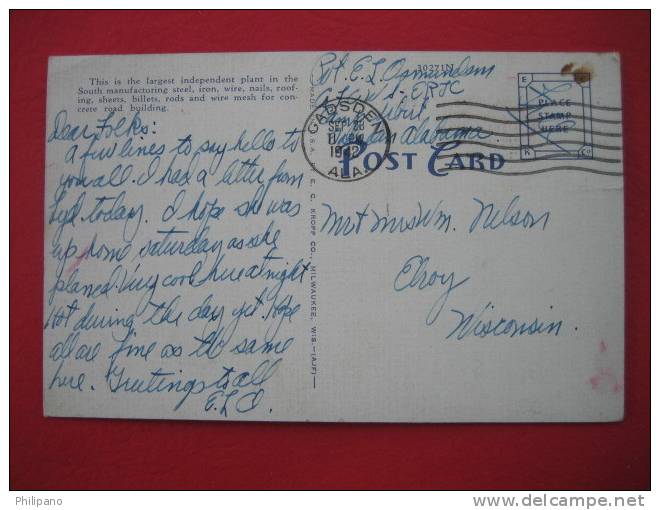 This is the largest independent plant in the
South manufactoring steel, iron, wire, nails, roof-
ing, sheets, billets, rods and wire mesh for con-
crete road building.
Dear Folks:
A few lines to say hello to
you all. I had a letter from
today. I hope she was
up home saturday as she
planed. Very cool here at night
Hot during the day yet. Hope
all are fine as the same
here. Greetings to all
E.L.O.
E. C. KROPP CO., MILWAUKEE, WIS.-(AJF)
30271N
Pvt. E. L. Osmundson
Alabama
GADSDEN
SEP 28
1942
ALA.
POST CARD
E C
PLACE
STAMP
HERE
K Co
Mr & Mrs Wm. Nelson
Elroy
Wisconsin.
Philipano
www.delcampe.net